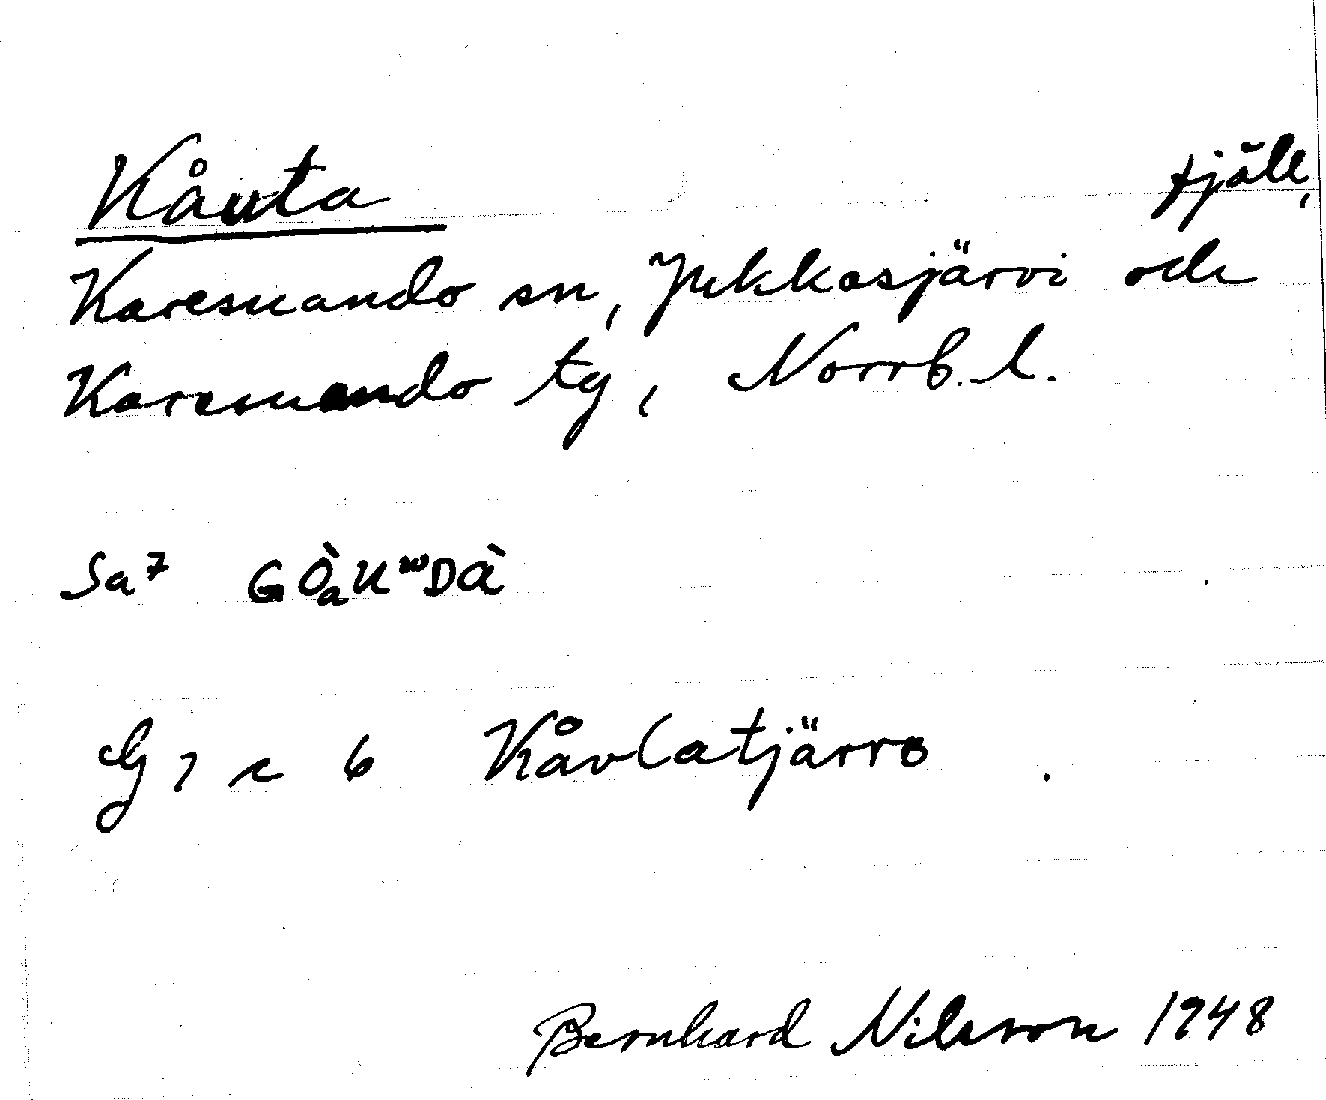 Kåuta fjäll,
Karesuando sn, Jukkasjärvi och
Karesuando tg, Norrb. l.
Sa7 GÒaUwDÀ
G 7 c 6 Kåvlatjärro
Bernhard Nilsson 1948